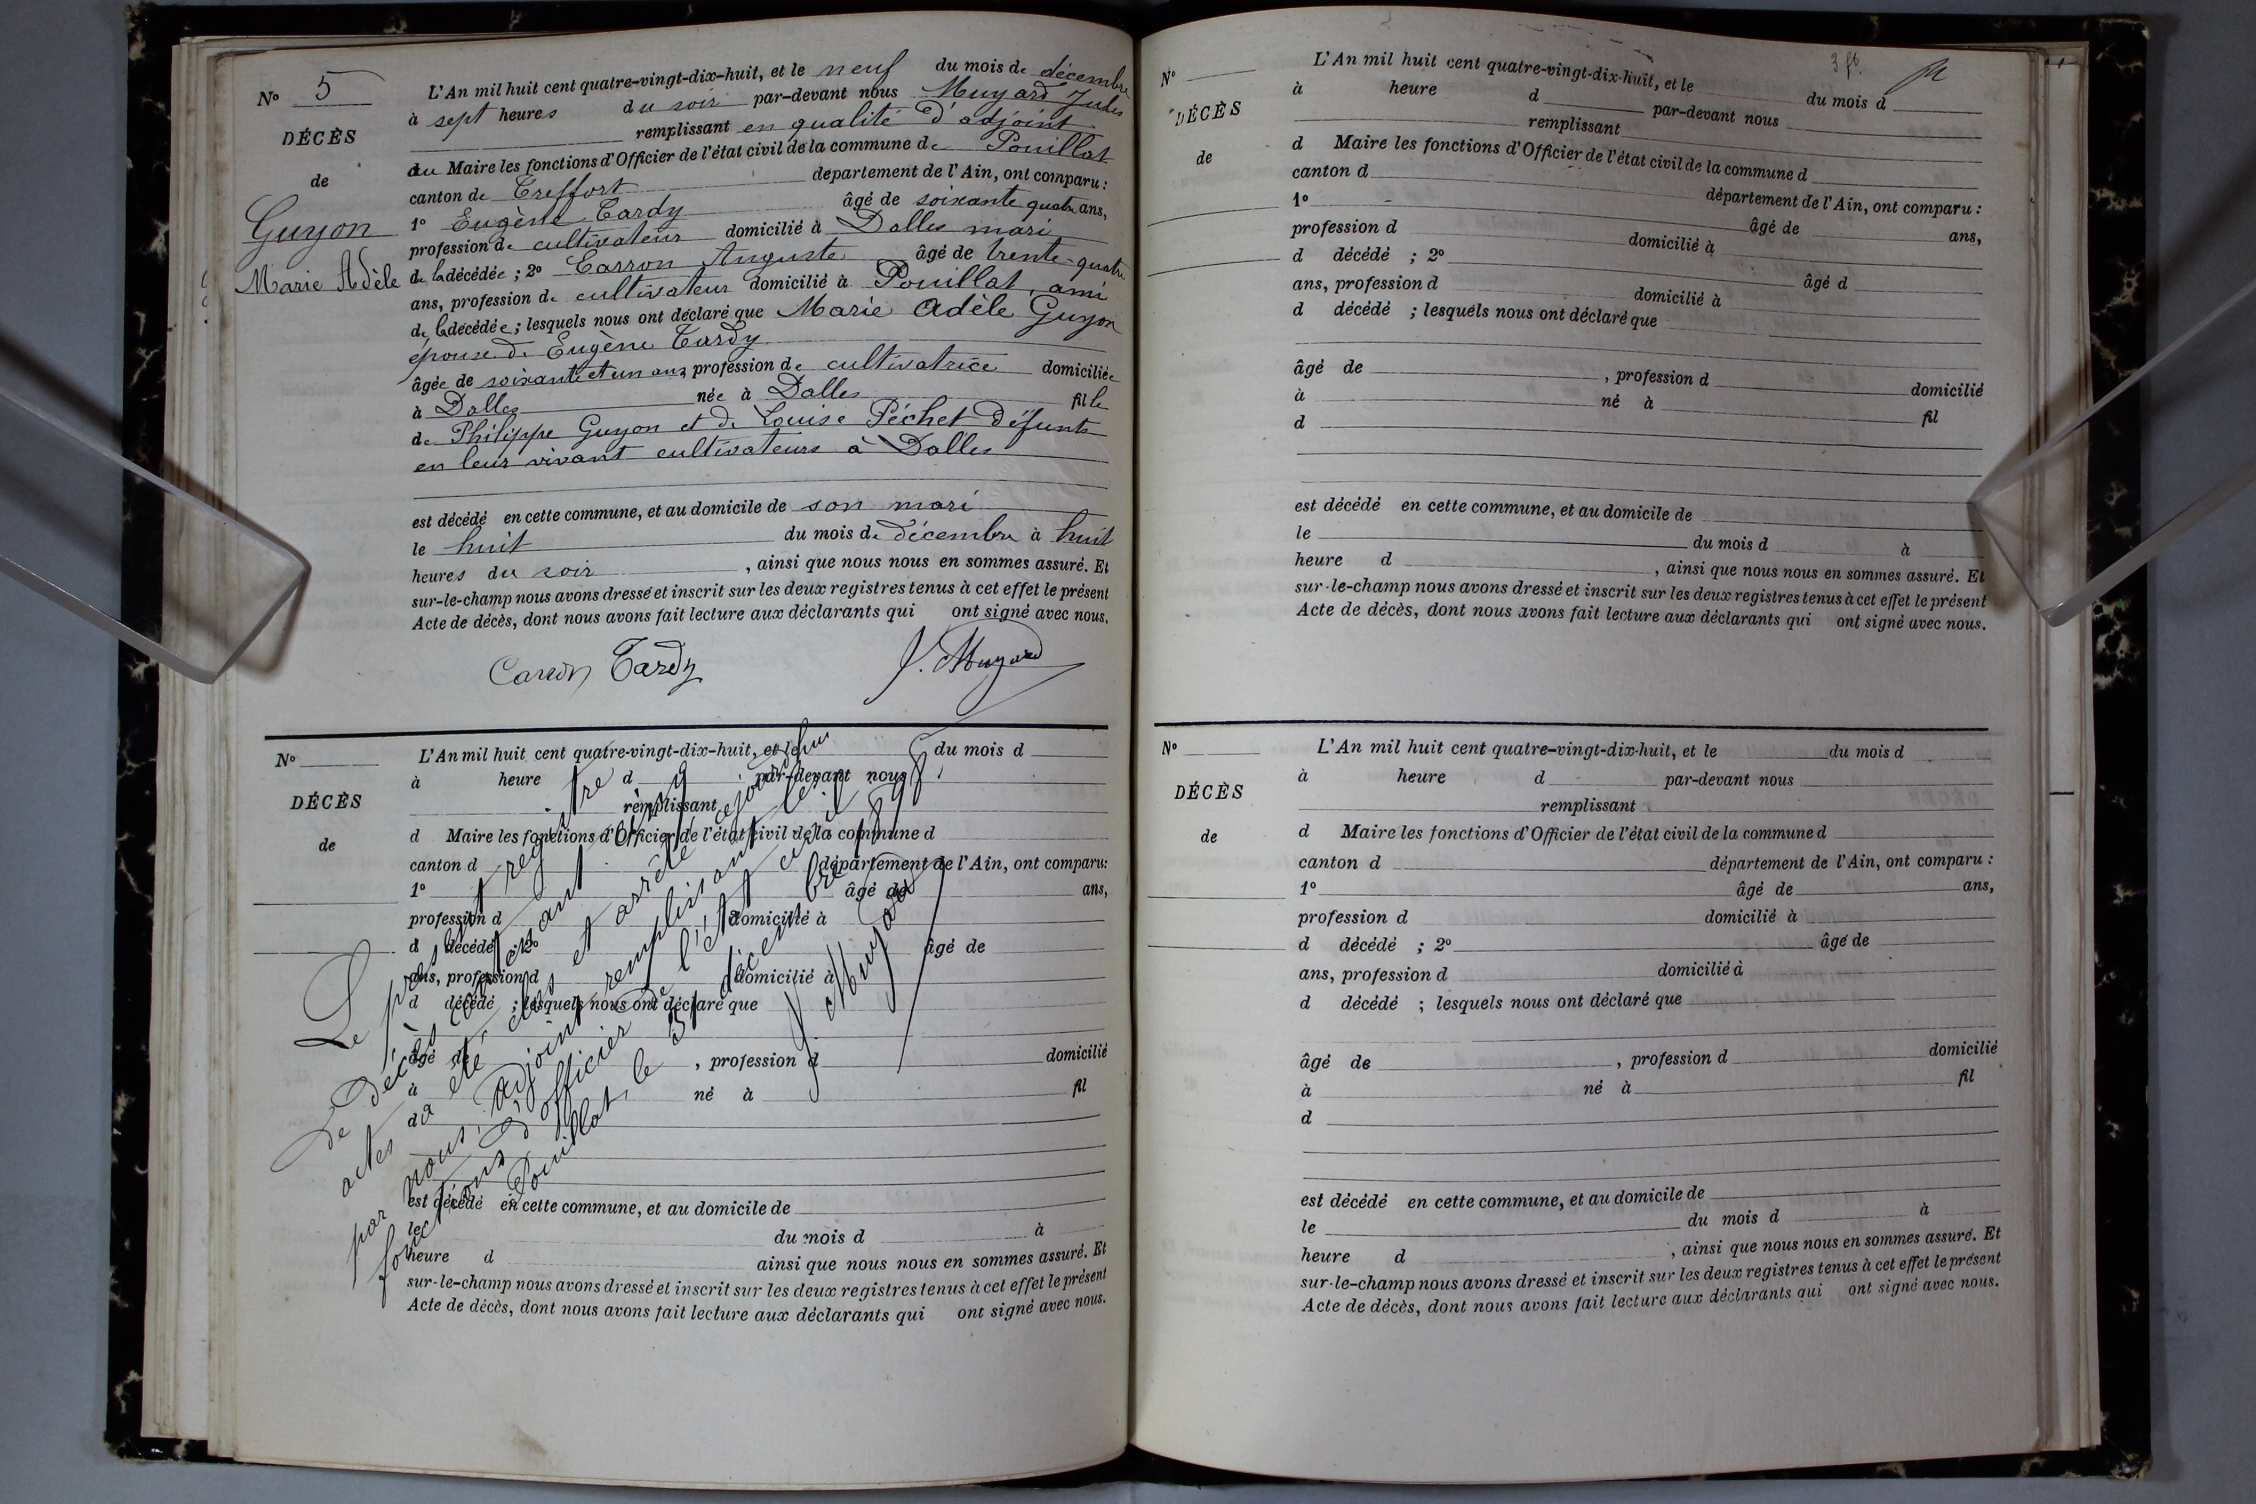 N° 5
DÉCÈS
de
Guyon
Marie Adèle
L'An mil huit cent quatre-vingt-dix-huit, et le neuf du mois de décembre
à sept heures du soir par-devant nous Muyard Jules
remplissant en qualité d'adjoint
au Maire les fonctions d'Officier de l'état civil de la commune de Pouillat
canton de Treffort département de l'Ain, ont comparu :
1° Eugène Tardy âgé de soixante quatre ans,
profession de cultivateur domicilié à Dalles mari
de la décédée ; 2° Carron Auguste âgé de trente-quatre
ans, profession de cultivateur domicilié à Pouillat, ami
de la décédée ; lesquels nous ont déclaré que Marie Adèle Guyon
épouse de Eugène Tardy
âgée de soixante et un ans, profession de cultivatrice domiciliée
à Dalles née à Dalles fille
de Philippe Guyon et de Louise Péchet défunts
en leur vivant cultivateurs à Dalles
est décédé en cette commune, et au domicile de son mari
le huit du mois de décembre à huit
heures du soir , ainsi que nous nous en sommes assuré. Et
sur-le-champ nous avons dressé et inscrit sur les deux registres tenus à cet effet le présent
Acte de décès, dont nous avons fait lecture aux déclarants qui ont signé avec nous.
Carron Tardy J. Muyard
N°
DÉCÈS
de
L'An mil huit cent quatre-vingt-dix-huit, et le du mois d
à heure d par-devant nous
remplissant
d Maire les fonctions d'Officier de l'état civil de la commune d
canton d département de l'Ain, ont comparu:
1° âgé de ans,
profession d domicilié à
d décédé ; 2° âgé de
ans, profession d domicilié à
d décédé ; lesquels nous ont déclaré que
âgé de , profession d domicilié
à né à fil
d
est décédé en cette commune, et au domicile de
le du mois d à
heure d ainsi que nous nous en sommes assuré. Et
sur-le-champ nous avons dressé et inscrit sur les deux registres tenus à cet effet le présent
Acte de décès, dont nous avons fait lecture aux déclarants qui ont signé avec nous.
Le présent registre
de décès contenant cinq
actes a été clos et arrêté ce jourd'hui
par nous, adjoint remplissant les
fonctions d'officier de l'état civil
Pouillat, le 31 décembre 1898.
J. Muyard
3 f6.
N°
DÉCÈS
de
L'An mil huit cent quatre-vingt-dix-huit, et le du mois d
à heure d par-devant nous
remplissant
d Maire les fonctions d'Officier de l'état civil de la commune d
canton d département de l'Ain, ont comparu :
1° âgé de ans,
profession d domicilié à
d décédé ; 2° âgé d
ans, profession d domicilié à
d décédé ; lesquels nous ont déclaré que
âgé de , profession d domicilié
à né à fil
d
est décédé en cette commune, et au domicile de
le du mois d à
heure d , ainsi que nous nous en sommes assuré. Et
sur-le-champ nous avons dressé et inscrit sur les deux registres tenus à cet effet le présent
Acte de décès, dont nous avons fait lecture aux déclarants qui ont signé avec nous.
N°
DÉCÈS
de
L'An mil huit cent quatre-vingt-dix-huit, et le du mois d
à heure d par-devant nous
remplissant
d Maire les fonctions d'Officier de l'état civil de la commune d
canton d département de l'Ain, ont comparu :
1° âgé de ans,
profession d domicilié à
d décédé ; 2° âgé de
ans, profession d domicilié à
d décédé ; lesquels nous ont déclaré que
âgé de , profession d domicilié
à né à fil
d
est décédé en cette commune, et au domicile de
le du mois d à
heure d , ainsi que nous nous en sommes assuré. Et
sur-le-champ nous avons dressé et inscrit sur les deux registres tenus à cet effet le présent
Acte de décès, dont nous avons fait lecture aux déclarants qui ont signé avec nous.